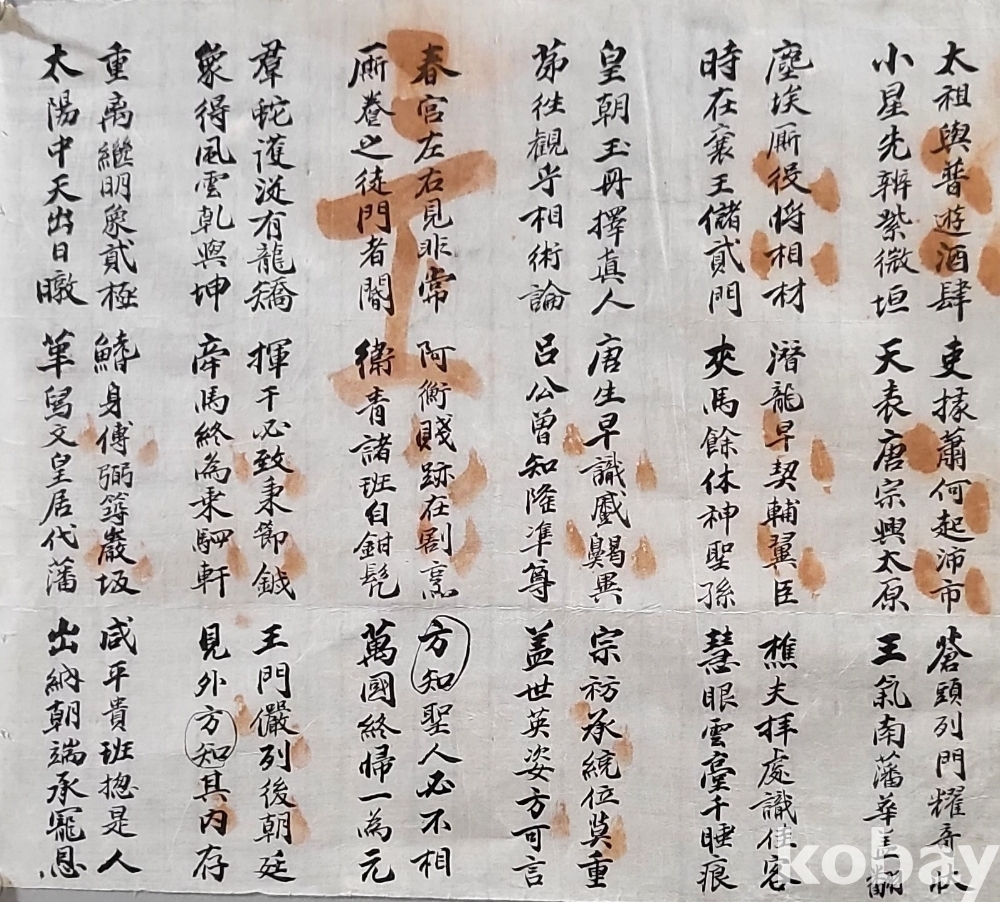 太祖與普遊酒肆 吏掾蕭何起沛市 蒼頭列門耀奇狀
小星先辨紫微垣 天表唐宗興太原 王氣南藩華盖翻
塵埃厮役將相材 潛龍早契輔翼臣 樵夫拜處識佳客
時在襄王儲貳門 夾馬餘休神聖孫 慧眼雲臺千睡痕
皇朝玉冊擇真人 唐生早識蹙齃異 宗祊承統位莫重
茀往観乎相術論 呂公曾知隆準尊 盖世英姿方可言
春宮左右見非常 阿衡賤跡在割烹 方知聖人必不相
厮養之徒門者閽 衛青諸班自鉗髡 萬國終歸一為元
羣蛇護従有龍矯 揮干必致秉節鉞 王門儼列後朝廷
象得風雲乾與坤 牽馬終為乘駟軒 見外方知其內存
重离継明象貳極 鰭身傅弼巖坂 咸平貴班揔是人
太陽中天出日暾 舄文皇居代藩 出納朝端承寵恩
kobay